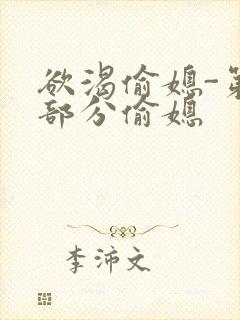 欲渴偷媳-第
部分偷媳
李沛文